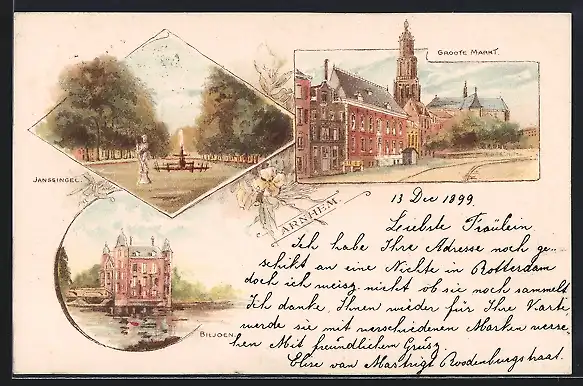 GROOTE MARKT.
JANSSINGEL.
ARNHEM.
BILJOEN.
13 Dec 1899.
Liebste Fräulein
Ich habe Ihre Adresse noch ge-
schikt an eine Nichte in Rotterdam
doch ich weisz nicht ob sie noch sammelt
Ich danke, Ihnen wieder für Ihre Karte
werde sie mit verschiedenen Marken verse-
hen Mit freundlichem Grusz.
Elise van Mastrigt Roodenburgstraat.